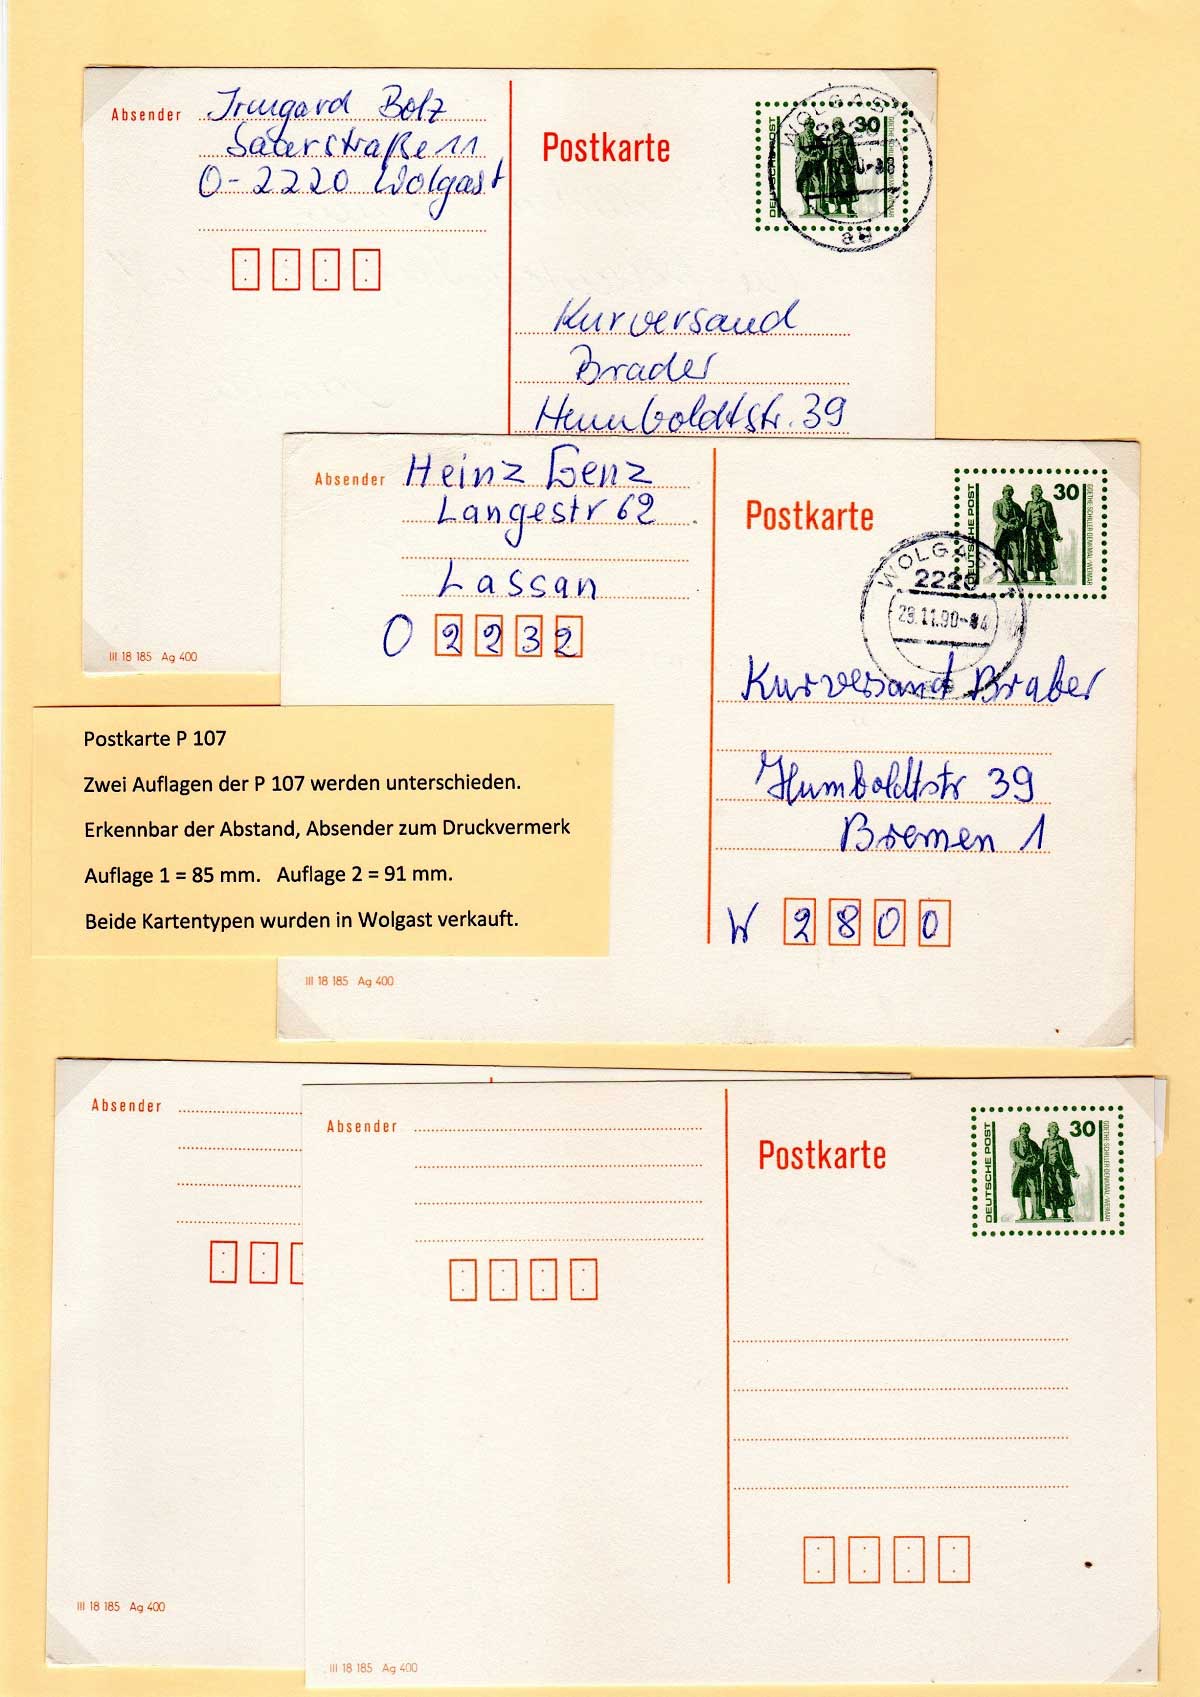 Absender Irmgard Bolz
Saterstraße 11
O-2220 Wolgast
Postkarte
DEUTSCHE POST
30
GOETHE-SCHILLER-DENKMAL-WEIMAR
WOLGAST 1
2220
Kurversand
Brader
Humboldtstr. 39
III 18 185 Ag 400
Absender Heinz Genz
Langestr 62
Lassan
O 2232
Postkarte
DEUTSCHE POST
30
GOETHE-SCHILLER-DENKMAL-WEIMAR
WOLGAST
2220
29.11.90-
Kurversand Braber
Humboldtstr 39
Bremen 1
W 2800
III 18 185 Ag 400
Postkarte P 107
Zwei Auflagen der P 107 werden unterschieden.
Erkennbar der Abstand, Absender zum Druckvermerk
Auflage 1 = 85 mm. Auflage 2 = 91 mm.
Beide Kartentypen wurden in Wolgast verkauft.
Absender
III 18 185 Ag 400
Absender
Postkarte
DEUTSCHE POST
30
GOETHE-SCHILLER-DENKMAL-WEIMAR
III 18 185 Ag 400